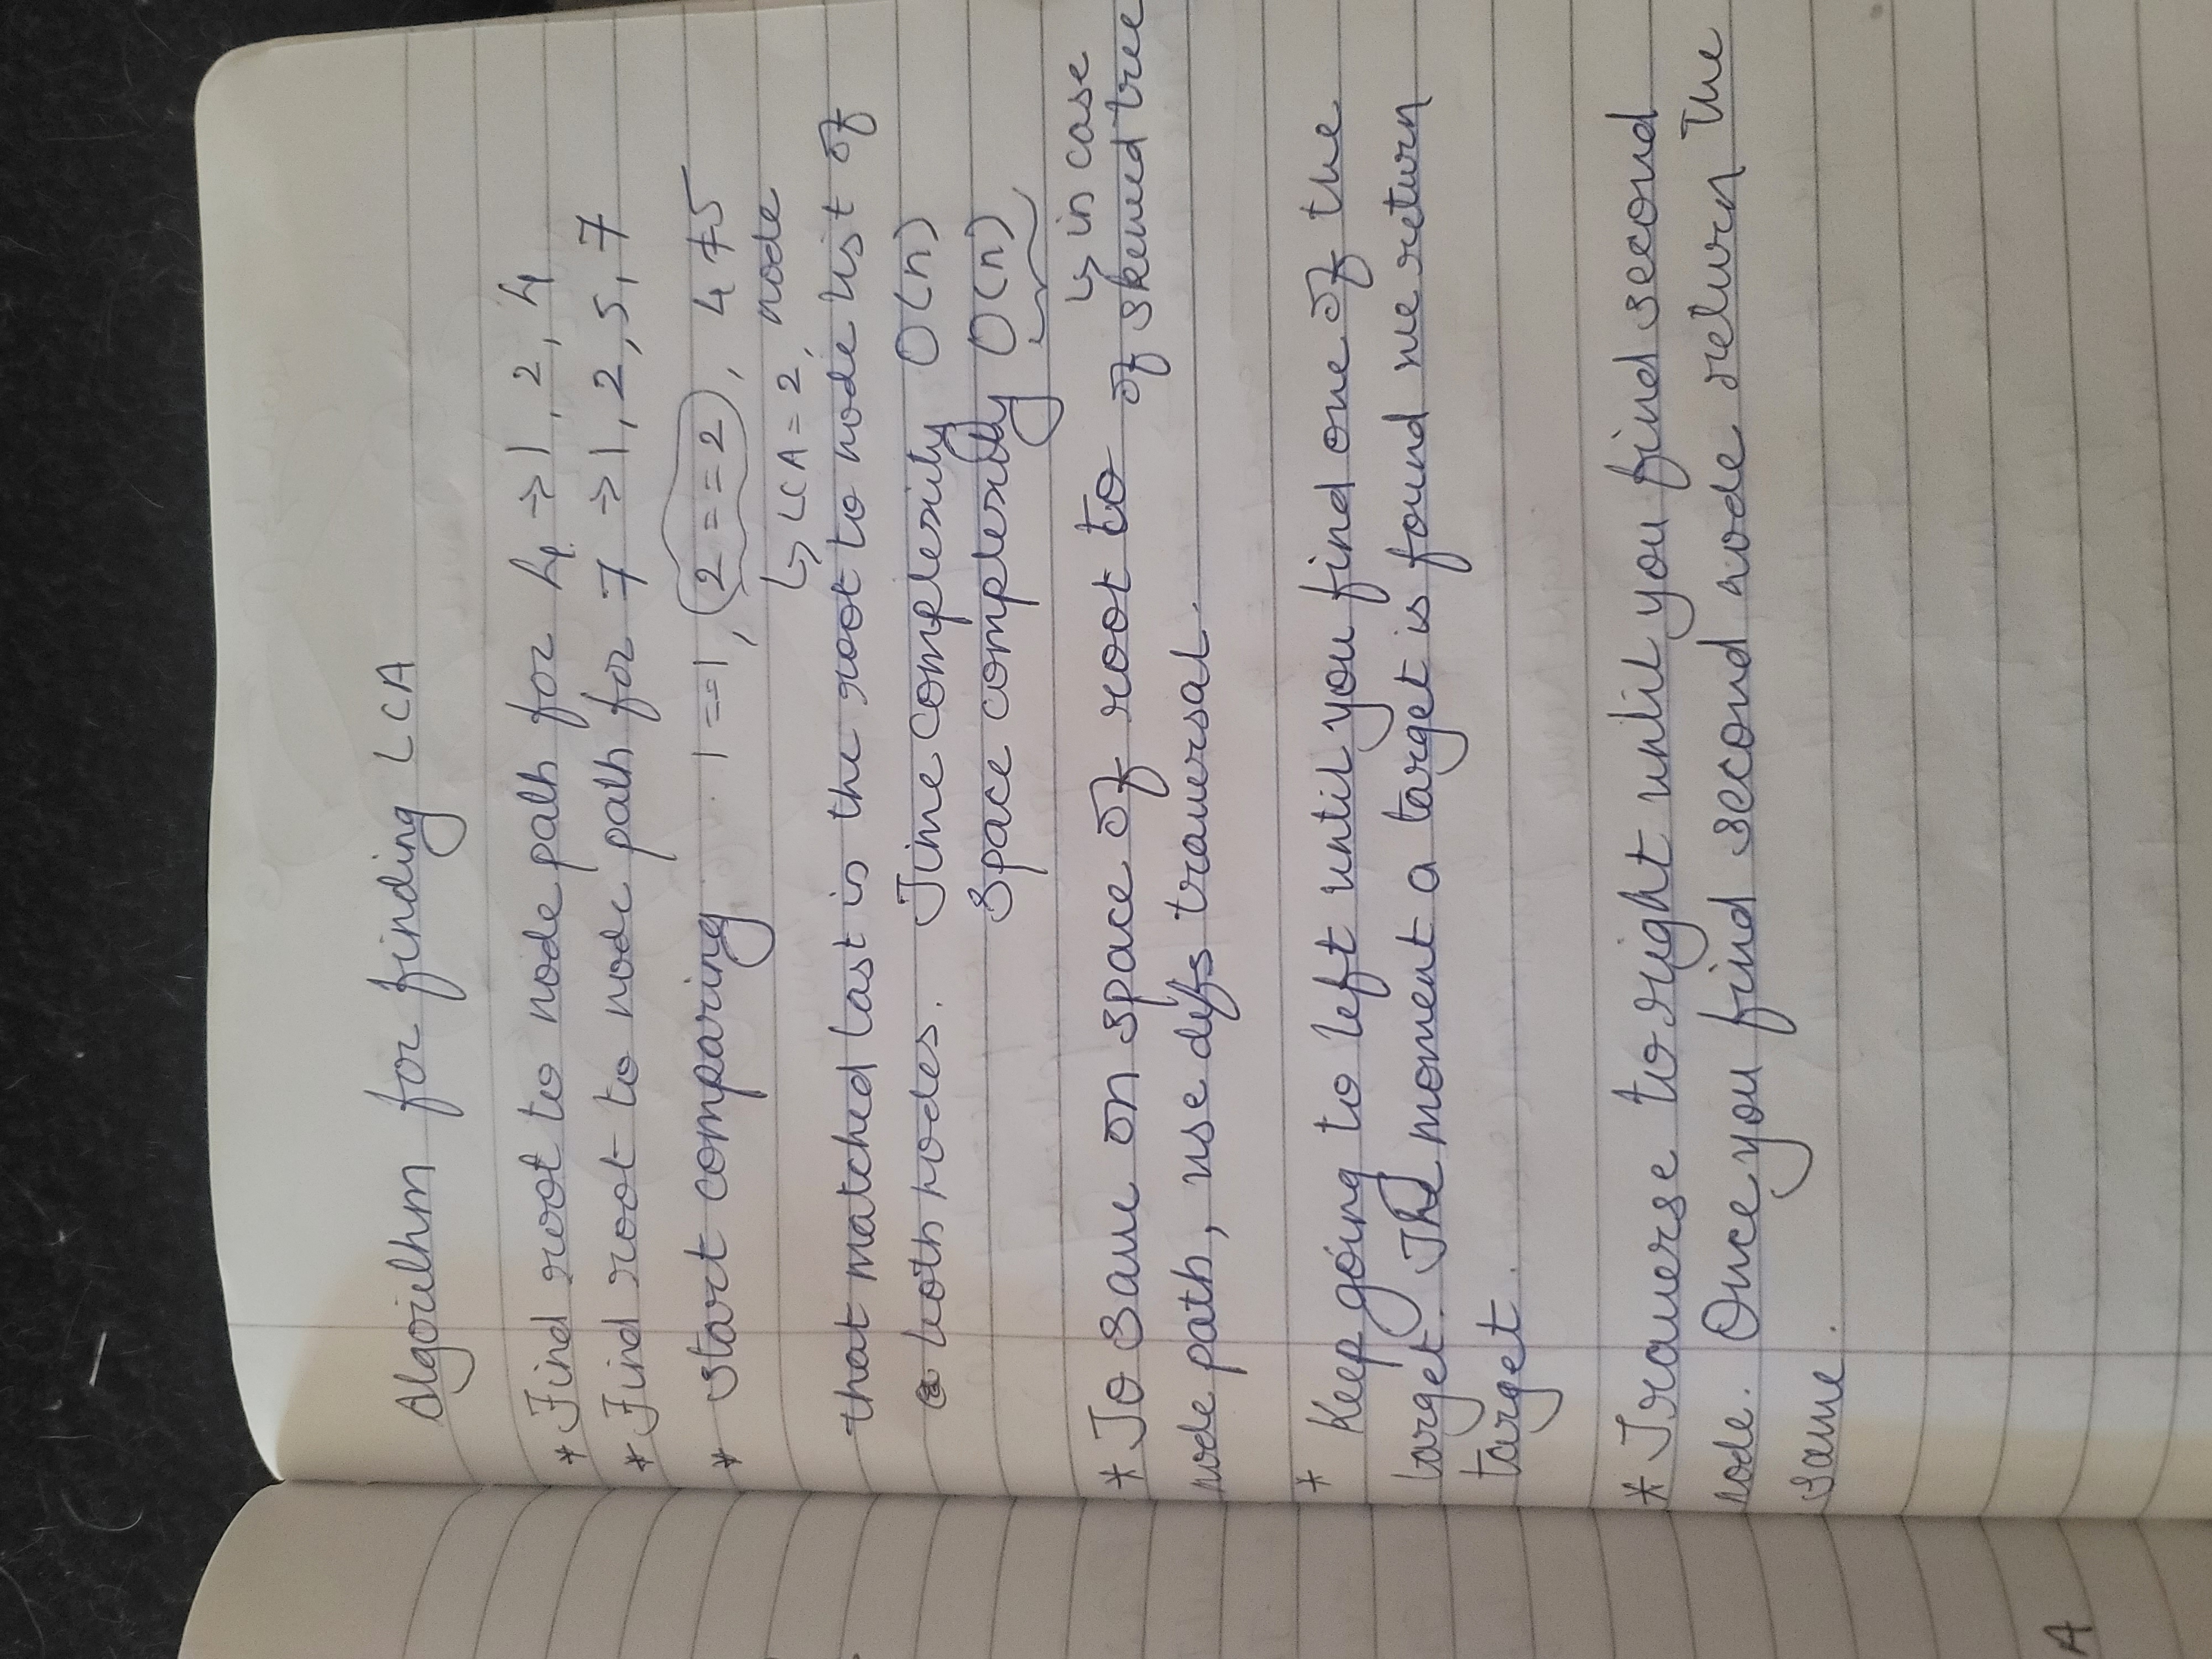 Algorithm for finding LCA
* Find root to node path for 4 → 1, 2, 4
* Find root to node path for 7 → 1, 2, 5, 7
* start comparing 1 == 1, 2 == 2, 4 ≠ 5
↳ LCA = 2, node
that matched last is the root to node list of
both nodes. Time complexity O(n)
Space complexity O(n)
↳ in case
of skewed tree
* To save on space of root to
node path, use dfs traversal.
* Keep going to left until you find one of the
target. The moment a target is found we return
target.
* Traverse to right until you find second
node. Once you find second node return the
same.
A